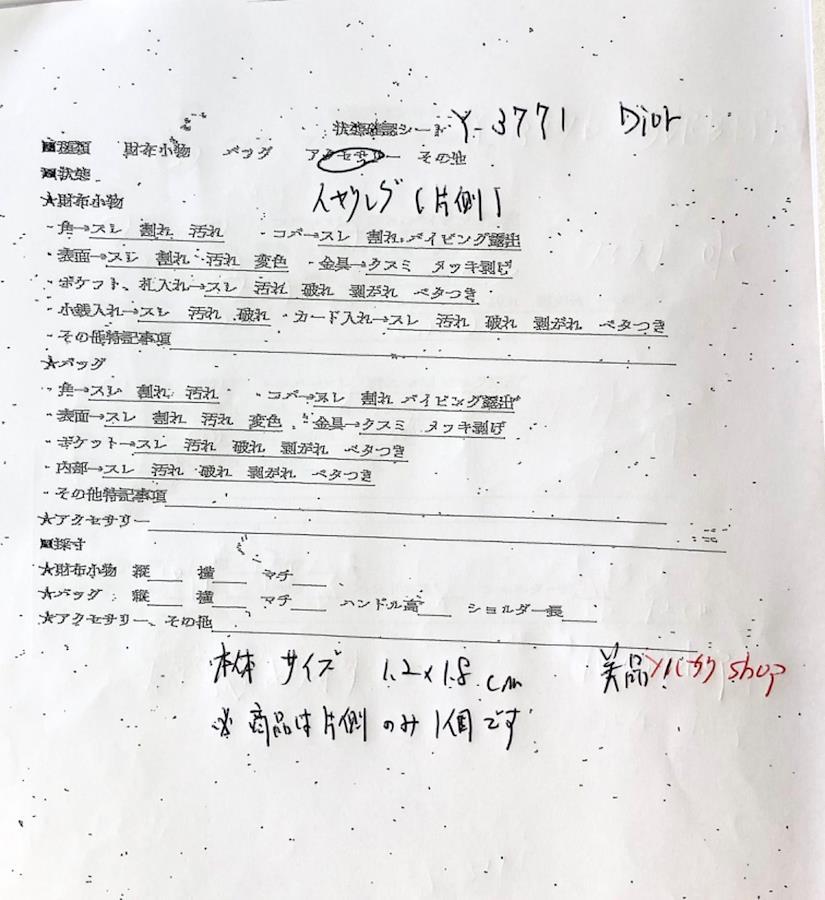 状態確認シート Y-3771 Dior
■種類 財布小物 バッグ アクセサリー その他
■状態
★財布小物 イヤリング (片側)
・角→スレ 割れ 汚れ ・コバ→スレ 割れ パイピング露出
・表面→スレ 割れ 汚れ 変色 ・金具→クスミ メッキ剥げ
・ポケット、札入れ→スレ 汚れ 破れ 剥がれ ベタつき
・小銭入れ→スレ 汚れ 破れ ・カード入れ→スレ 汚れ 破れ 剥がれ ベタつき
・その他特記事項
★バッグ
・角→スレ 割れ 汚れ ・コバ→スレ 割れ パイピング露出
・表面→スレ 割れ 汚れ 変色 ・金具→クスミ メッキ剥げ
・ポケット→スレ 汚れ 破れ 剥がれ ベタつき
・内部→スレ 汚れ 破れ 剥がれ ベタつき
・その他特記事項
★アクセサリー
■採寸
★財布小物 縦 横 マチ
★バッグ 縦 横 マチ ハンドル高 ショルダー長
★アクセサリー、その他
本体 サイズ 1.2×1.8cm 美品! shop
※ 商品は片側のみ1個です